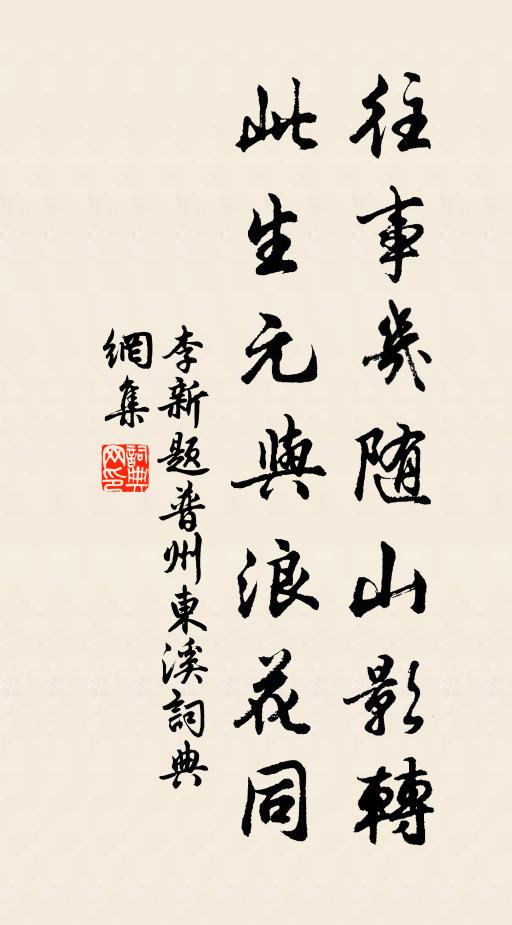 往事幾随山影轉
此生元與浪花同
李新題普州東溪詞典
網集
詞典
网印